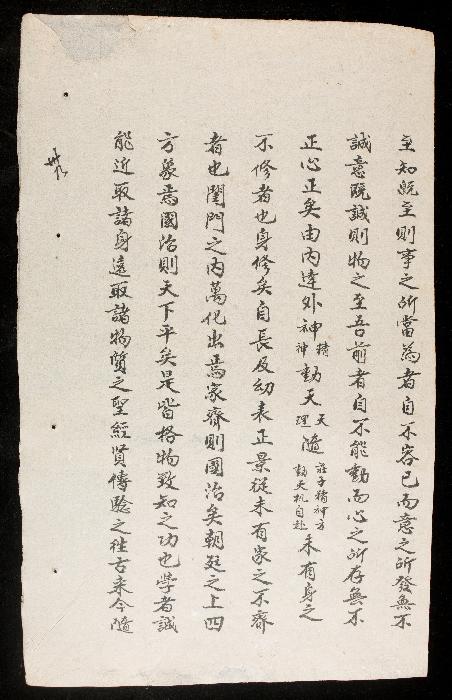 至知既至則事之所當為者自不容已而意之所發無不
誠意既誠則物之至吾前者自不能動而心之所存無不
正心正矣由內達外神精神動天天理隨莊子精神方動天机自赴未有身之
不修者也身修矣自長及幼表正景從未有家之不齊
者也閨門之內萬化出焉家齊則國治矣朝廷之上四
方象焉國治則天下平矣是皆格物致知之功也學者誠
能近取諸身遠取諸物質之聖經賢傳驗之往古来今隨